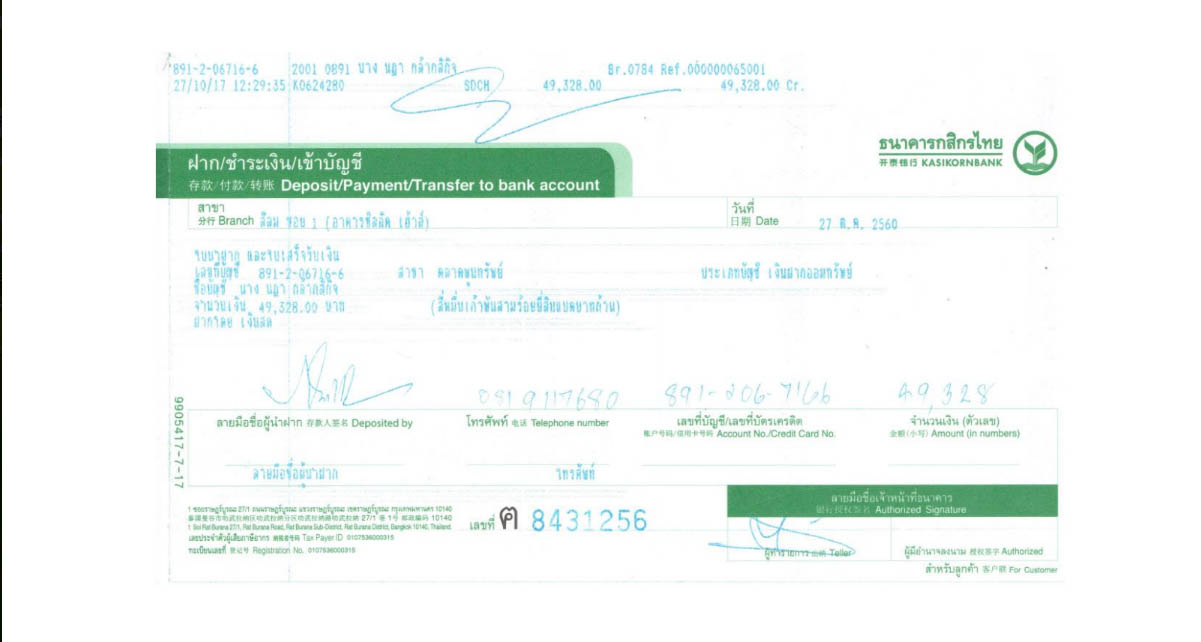 891-2-06716-6 2001 0891 นาง นฎา กล้ากสิกิจ Br.0784 Ref.000000065001
27/10/17 12:29:35 K0624280 SDCH 49,328.00 49,328.00 Cr.
ธนาคารกสิกรไทย
开泰银行 KASIKORNBANK
ฝาก/ชำระเงิน/เข้าบัญชี
存款/付款/转账 Deposit/Payment/Transfer to bank account
สาขา
分行 Branch สีลม ซอย 1 (อาคารซิลลิค เฮ้าส์)
วันที่
日期 Date 27 ต.ค. 2560
ใบนำฝาก และใบเสร็จรับเงิน
เลขที่บัญชี 891-2-06716-6 สาขา ตลาดยูนทรัพย์ ประเภทบัญชี เงินฝากออมทรัพย์
ชื่อบัญชี นาง นฎา กล้ากสิกิจ
จำนวนเงิน 49,328.00 บาท (สี่หมื่นเก้าพันสามร้อยยี่สิบแปดบาทถ้วน)
ฝากโดย เงินสด
0819117680 891-206-7166 49,328
ลายมือชื่อผู้นำฝาก 存款人签名 Deposited by
โทรศัพท์ 电话 Telephone number
เลขที่บัญชี/เลขที่บัตรเครดิต
账户号码/信用卡号码 Account No./Credit Card No.
จำนวนเงิน (ตัวเลข)
金额(小写) Amount (in numbers)
9905417-7-17
ลายมือชื่อผู้นำฝาก โทรศัพท์
1 ซอยราษฎร์บูรณะ 27/1 ถนนราษฎร์บูรณะ แขวงราษฎร์บูรณะ เขตราษฎร์บูรณะ กรุงเทพมหานคร 10140
泰国曼谷市叻武拉纳区叻武拉纳分区叻武拉纳路叻武拉纳 27/1 巷 1号 邮政编码 10140
1 Soi Rat Burana 27/1, Rat Burana Road, Rat Burana Sub-District, Rat Burana District, Bangkok 10140, Thailand.
เลขประจำตัวผู้เสียภาษีอากร 纳税者号码 Tax Payer ID 0107536000315
ทะเบียนเลขที่ 登记号 Registration No. 0107536000315
เลขที่ ค 8431256
ลายมือชื่อเจ้าหน้าที่ธนาคาร
银行授权签名 Authorized Signature
ผู้ทำรายการ 出纳 Teller
ผู้มีอำนาจลงนาม 授权签字 Authorized
สำหรับลูกค้า 客户联 For Customer